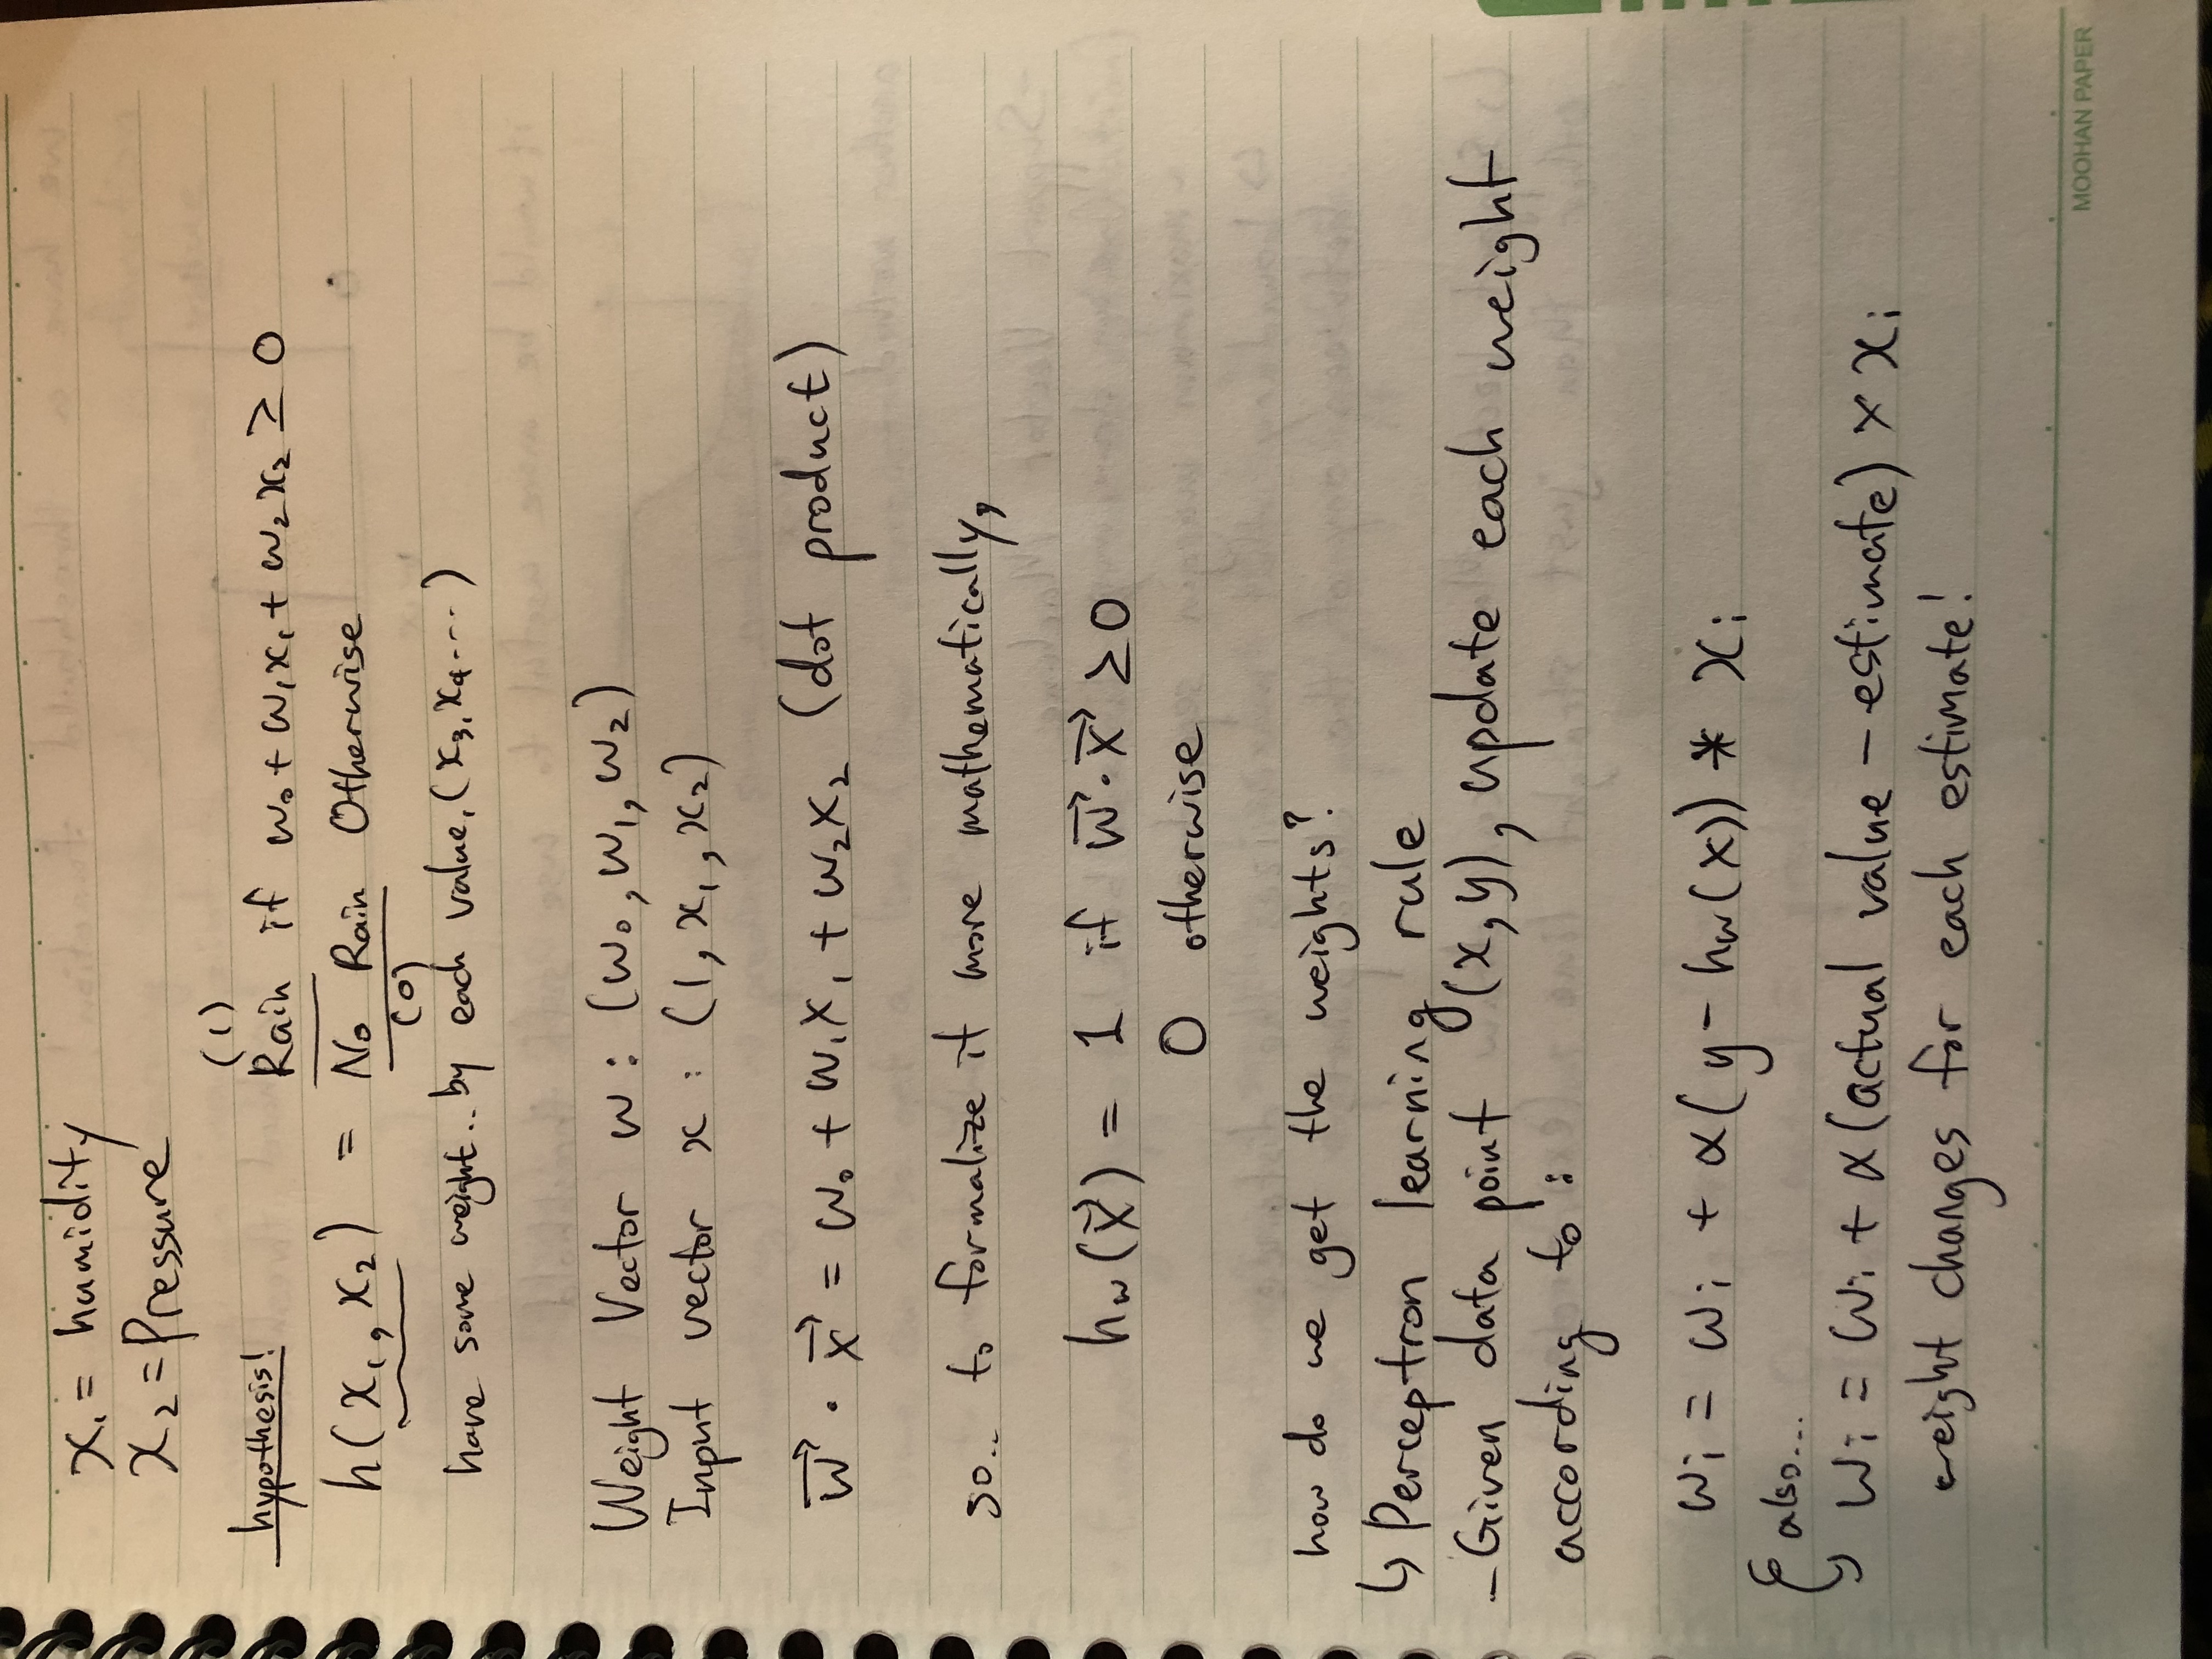 x₁ = humidity
x₂ = Pressure
(1)
hypothesis! Rain if w₀ + w₁x₁ + w₂x₂ ≥ 0
h(x₁, x₂) = No Rain Otherwise
(0)
have some weight.. by each value, (x₃, x₄ ....)
Weight Vector w : (w₀, w₁, w₂)
Input vector x : (1, x₁, x₂)
w⃗ · x⃗ = w₀ + w₁x₁ + w₂x₂ (dot product)
so.. to formalize it more mathematically,
h_w(x⃗) = 1 if w⃗·x⃗ ≥ 0
0 otherwise
how do we get the weights?
↳ Perceptron learning rule
- Given data point (x, y), update each weight
according to :
wᵢ = wᵢ + α(y - h_w(x)) * xᵢ
also...
wᵢ = wᵢ + α(actual value - estimate) × xᵢ
weight changes for each estimate!
MOOHAN PAPER